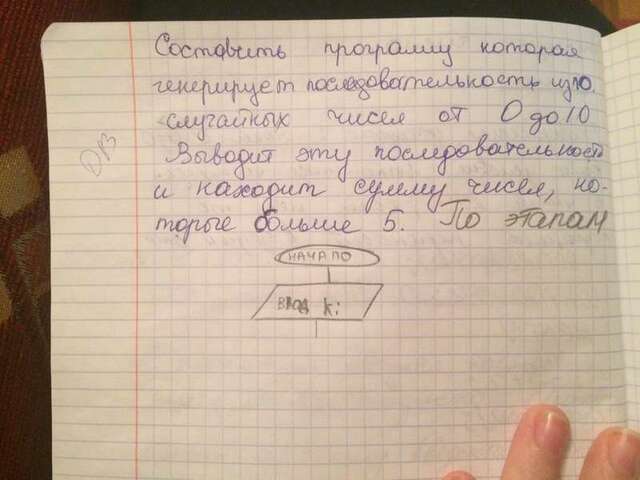 Составить программу которая
генерирует последовательность из 10.
случайных чисел от 0 до 10
Выводит эту последовательность
и находит сумму чисел, ко-
торые больше 5. По этапам
НАЧАЛО
ВВОД k: